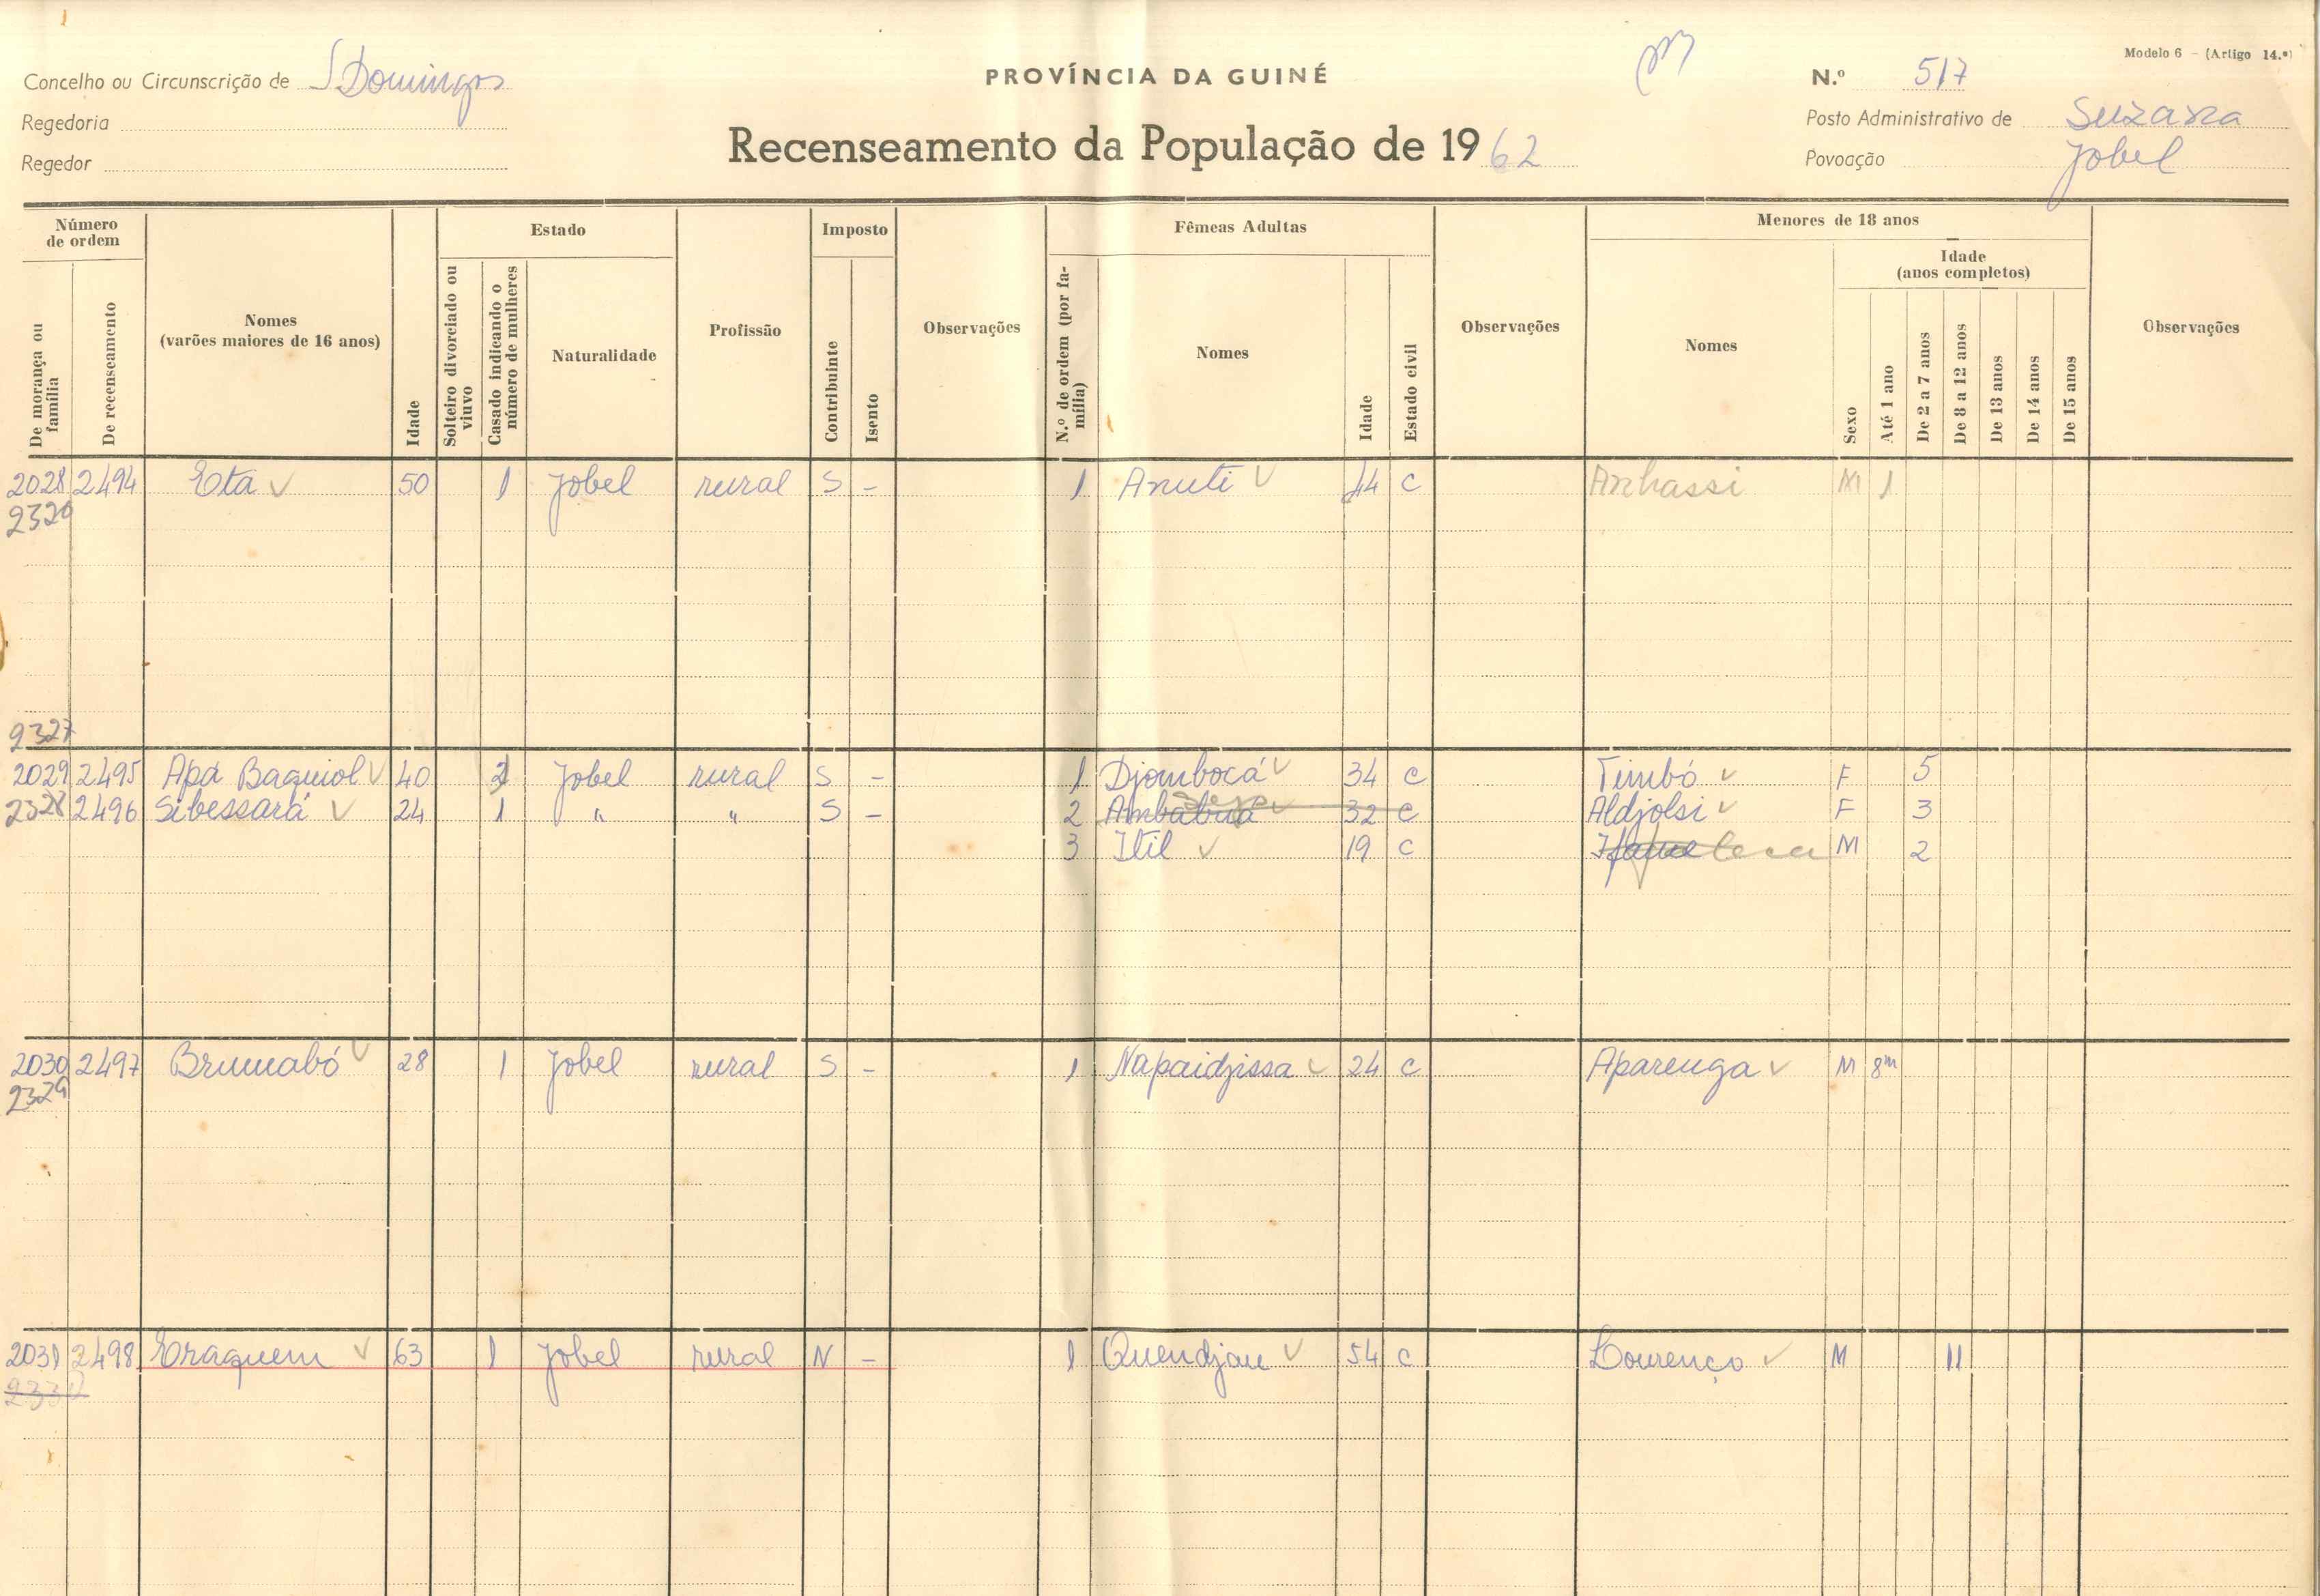 Modelo 6 - (Artigo 14.º)
Concelho ou Circunscrição de S Domingos
PROVÍNCIA DA GUINÉ
N.º 517
Regedoria
Posto Administrativo de Suzana
Regedor
Recenseamento da População de 1962
Povoação Jobel
Número de ordem
De morança ou família
De recenseamento
Nomes
(varões maiores de 16 anos)
Idade
Estado
Solteiro divorciado ou viuvo
Casado indicando o número de mulheres
Naturalidade
Profissão
Imposto
Contribuinte
Isento
Observações
Fêmeas Adultas
N.º de ordem (por família)
Nomes
Idade
Estado civil
Observações
Menores de 18 anos
Nomes
Sexo
Idade
(anos completos)
Até 1 ano
De 2 a 7 anos
De 8 a 12 anos
De 13 anos
De 14 anos
De 15 anos
Observações
2028 2494 Eta 50 1 Jobel rural S - 1 Anuti 44 C Anhassi M 1
2326
2327
2029 2495 Apá Baquiol 40 2 Jobel rural S - 1 Djombocá 34 C Timbó F 5
2328 2496 Sibessará 24 1 " " S - 2 32 C Aldjolsi F 3
3 Itil 19 C M 2
2030 2497 Brumabó 28 1 Jobel rural S - 1 Napaidjissa 24 C Aparenga M 8m
2329
2031 2498 Eraquem 63 1 Jobel rural N - 1 Quendjau 54 C Lourenço M 11